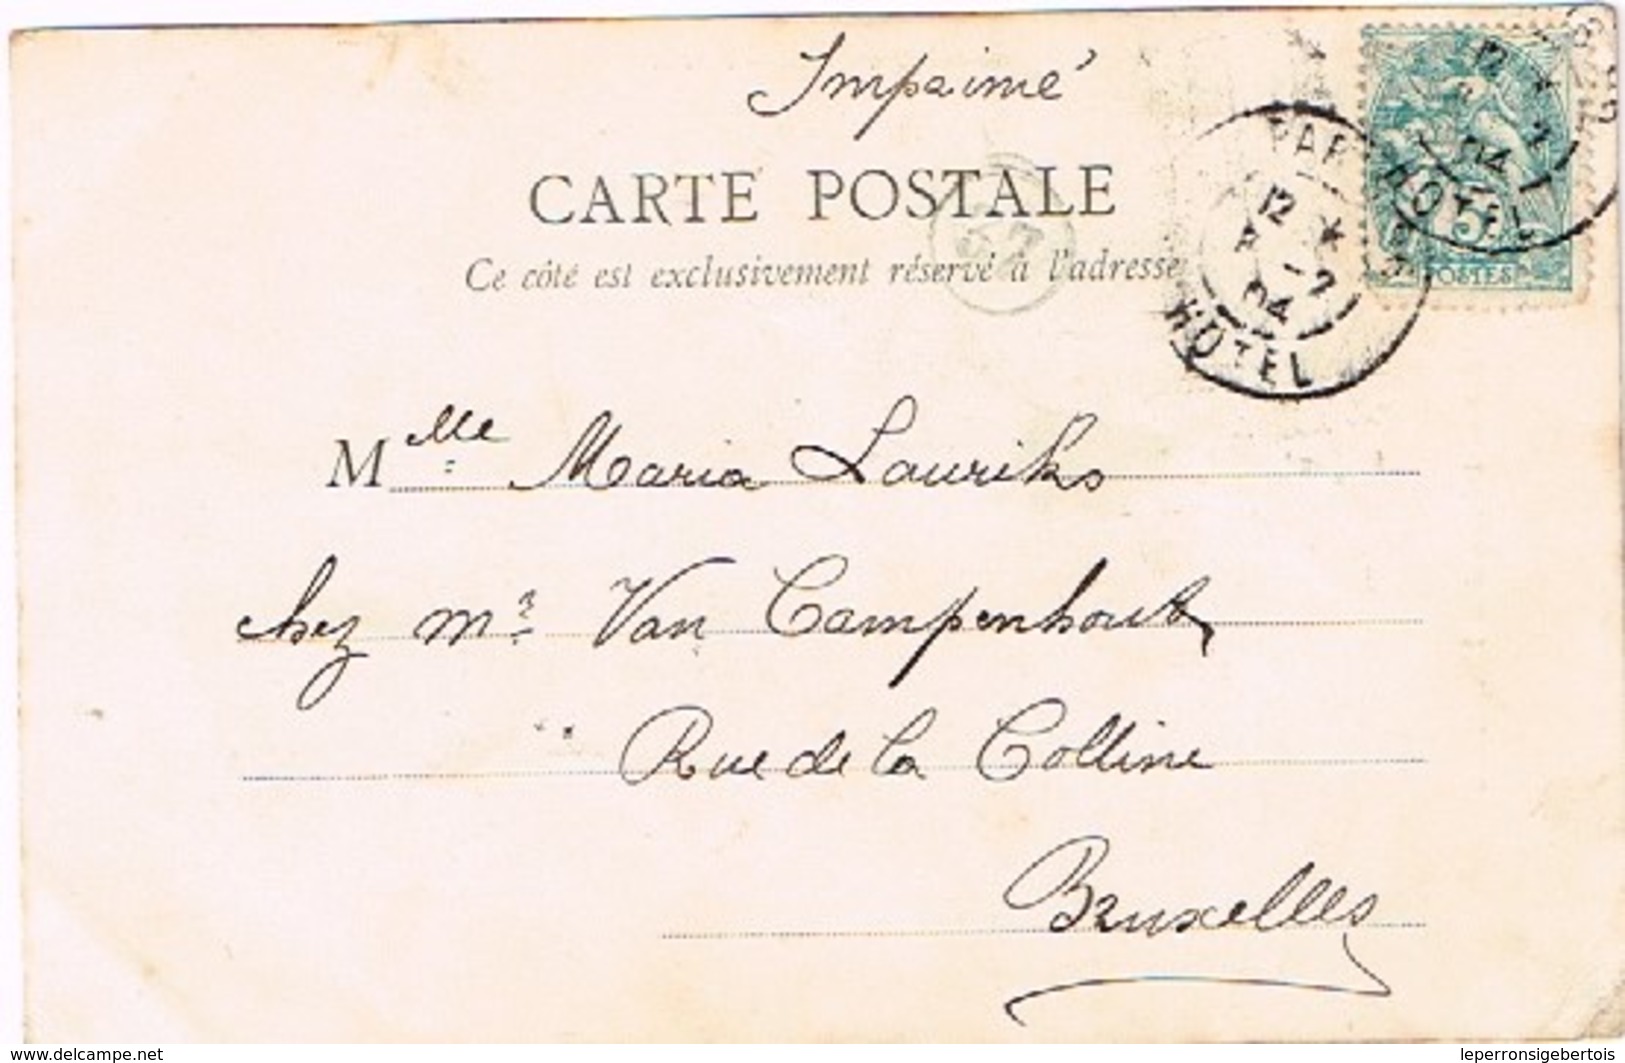 Imprimé
CARTE POSTALE
Ce côté est exclusivement réservé à l'adresse
37
PAR
12 *
-2
04
HOTEL
12 *
2
04
HOTEL
5
POSTES
Mlle Maria Lauriks
chez Mr Van Campenhout
Rue de la Colline
Bruxelles
www.delcampe.net
leperronsigebertois